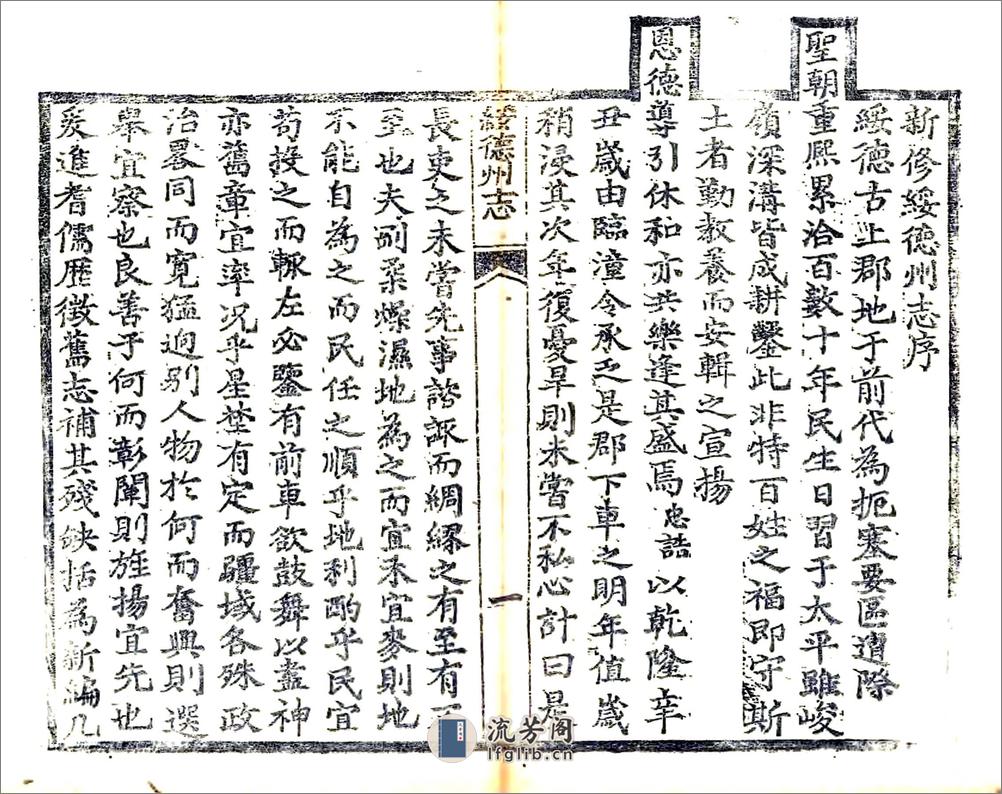 新修綏德州志序
綏德古上郡地于前代為扼塞要區遭際
聖朝重熙累洽百數十年民生日習于太平雖峻
嶺深溝皆成耕鑿此非特百姓之福即守斯
土者勤教養而安輯之宣揚
恩德導引休和亦共樂逢其盛焉忠誥以乾隆辛
丑歲由臨潼令承乏是郡下車之明年值歲
稍浸其次年復憂旱則未嘗不私心計曰是
綏德州志 一
長吏之未嘗先事諮諏而綢繆之有至有
至也夫剛柔燥濕地為之而宜禾宜麥則地
不能自為之而民任之順乎地利酌乎民宜
苟投之而輙左必鑒有前車欲鼓舞以盡神
亦舊章宜率况乎星埜有定而疆域各殊政
治畧同而寬猛逈别人物於何而奮興則選
舉宜察也良善于何而彰闡則旌揚宜先也
爰進耆儒歴徵舊志補其殘缺括為新編凡
流芳阁
lfglib.cn